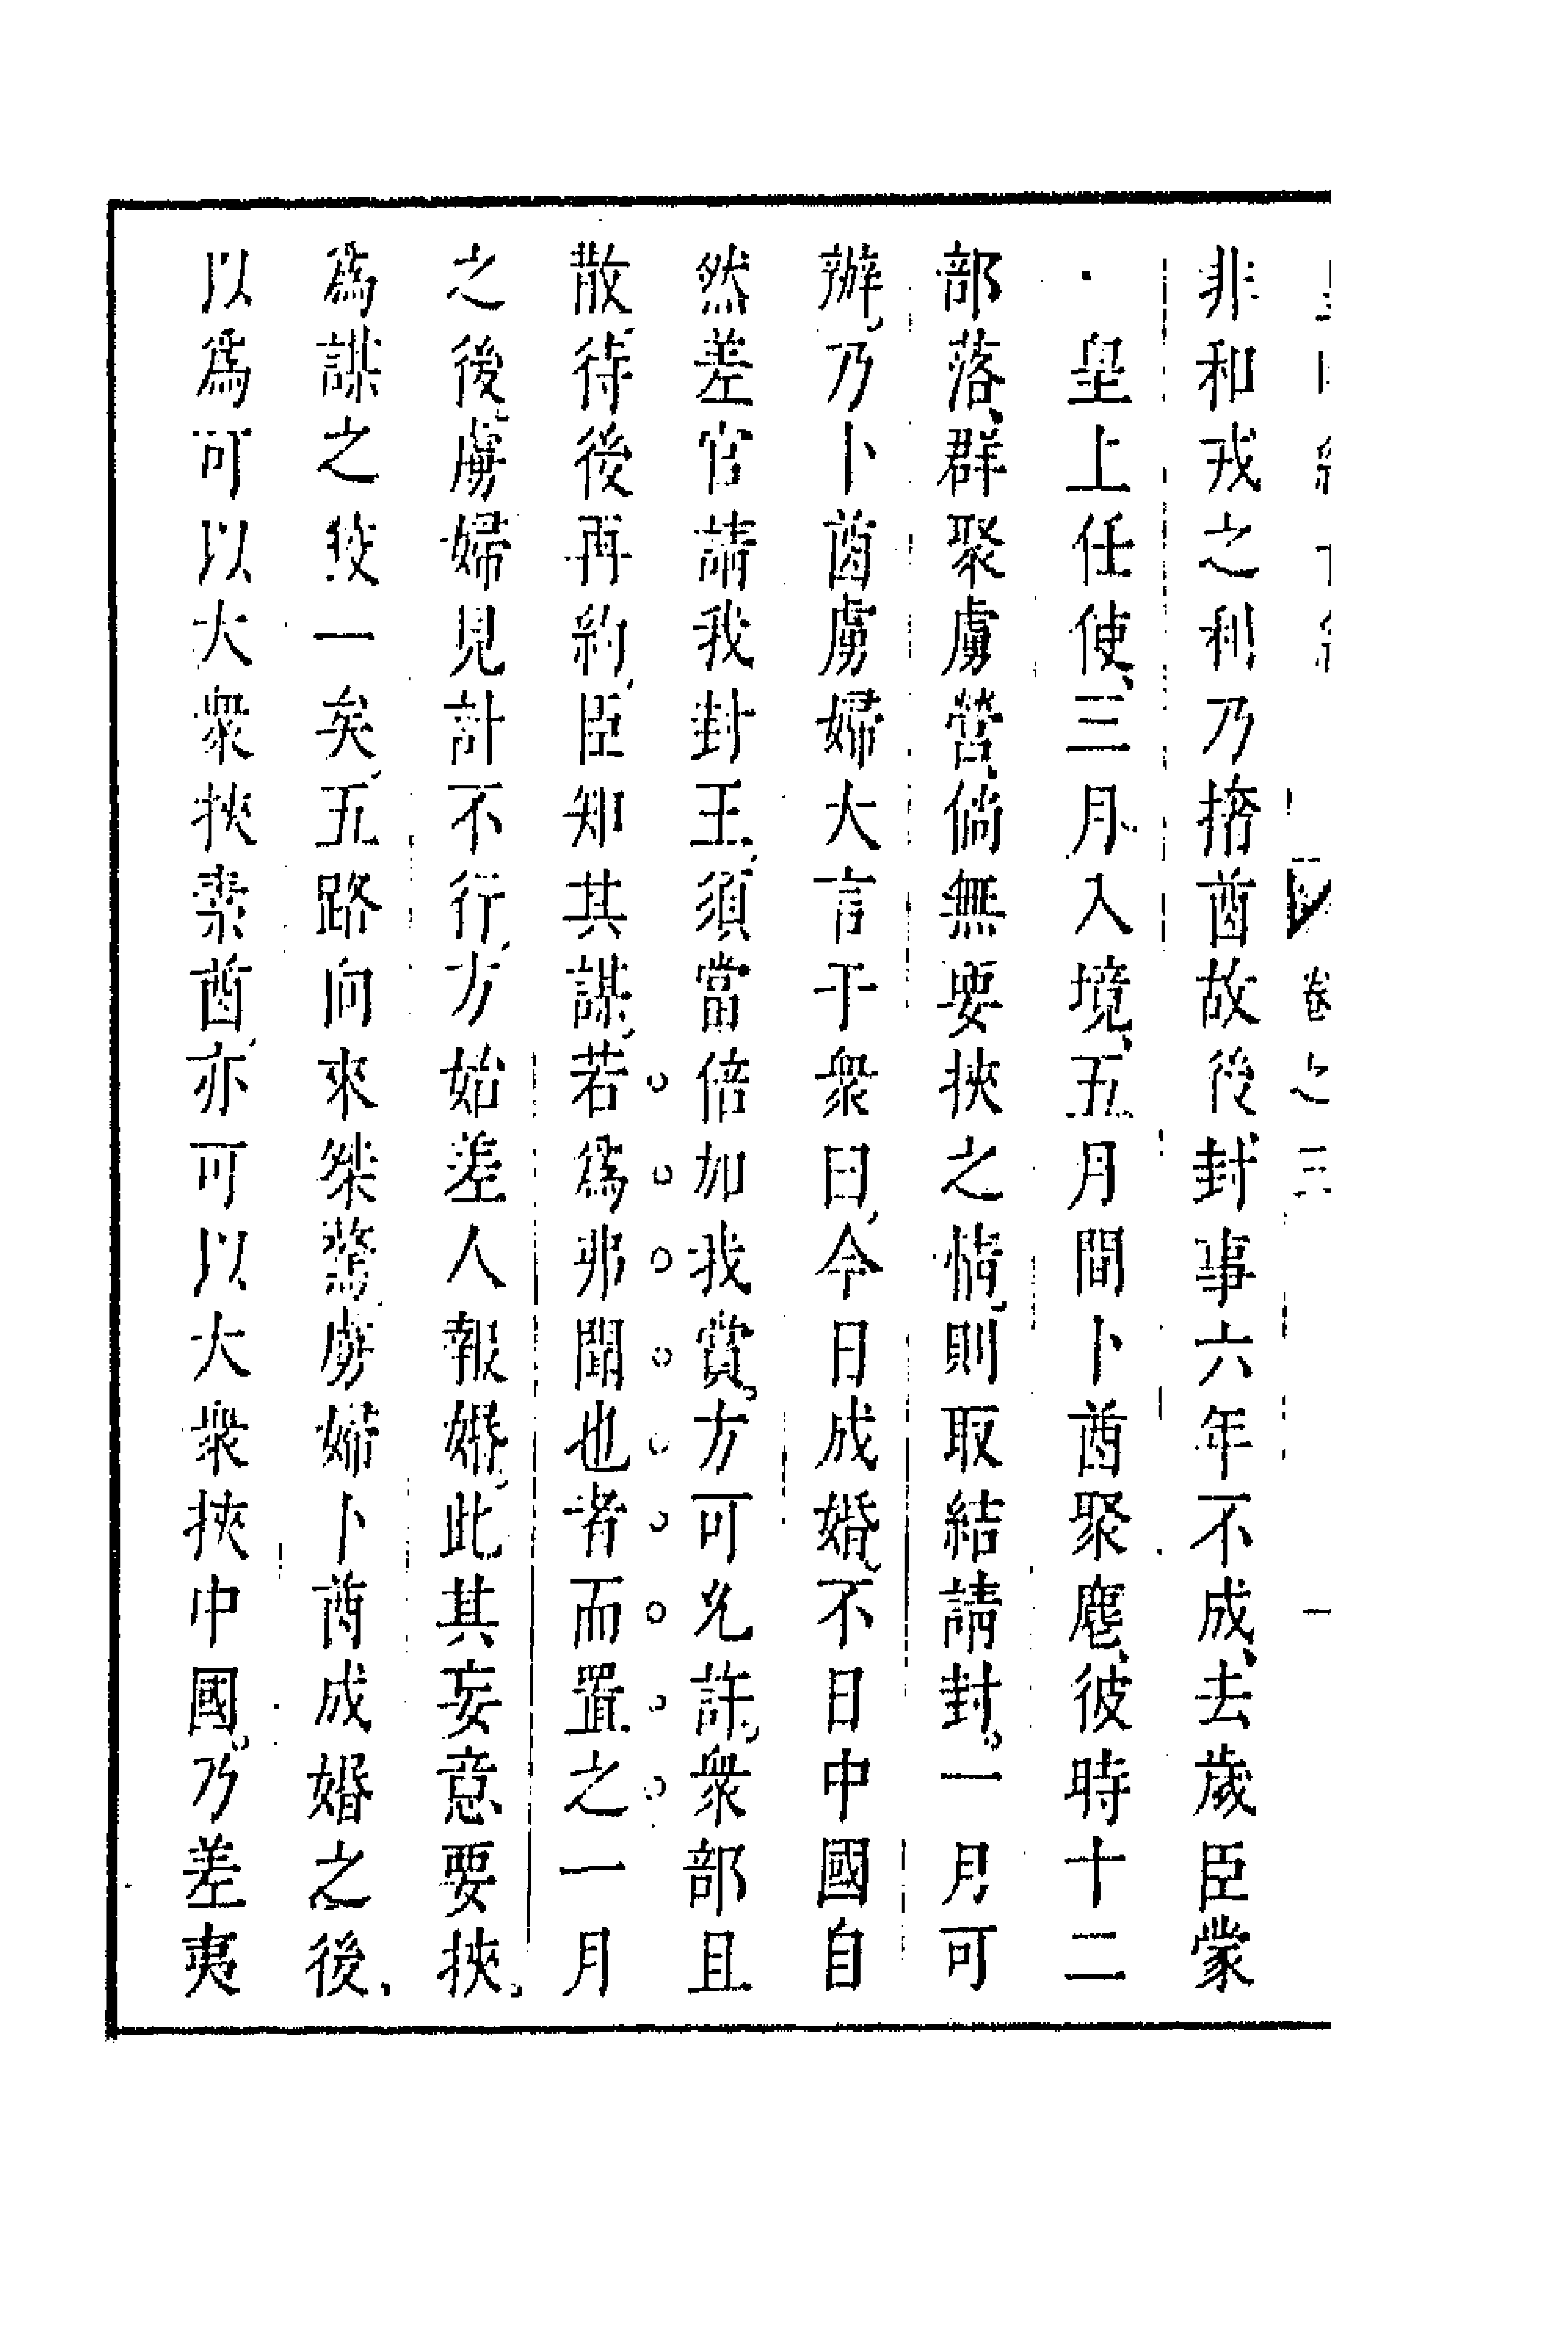 卷之三 一
非和戎之利乃撦酋故後封事六年不成、去歲臣蒙
皇上任使、三月入境、五月間卜酋聚塵、彼時十二
部落、群聚虜營、倘無要挾之情、則取結請封。一月可
辦、乃卜酋虜婦大言于衆曰、今日成婚、不日中國自
然差官請我封王、須當倍加我賞。方可允許。衆部且
散、待後再約、臣知其謀、若爲弗聞也者而置之一月
之後、虜婦見計不行、方始差人報婚、此其妄意要挾。
爲謀之狡一矣、五路向來桀驁、虜婦卜酋成婚之後、
以爲可以大衆挾素酋、亦可以大衆挾中國。乃差夷